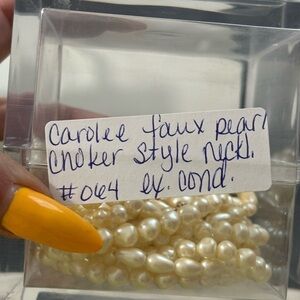 Carolee faux pearl
choker style neckl.
#064 ex. cond.